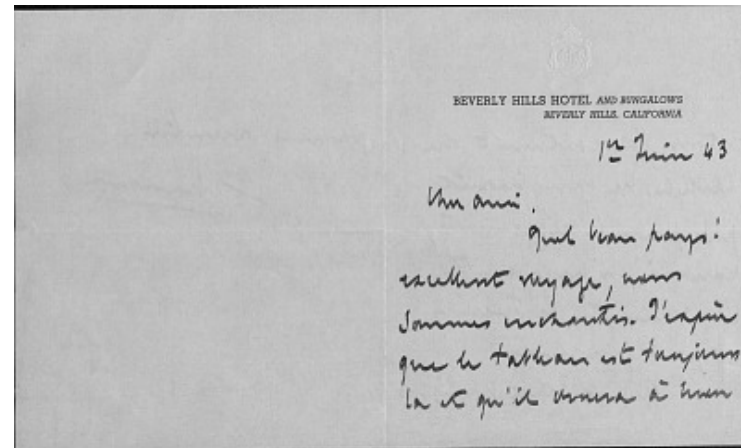 BEVERLY HILLS HOTEL AND BUNGALOWS
BEVERLY HILLS, CALIFORNIA
1er Juin 43
Cher ami,
Quel beau pays!
excellent voyage, nous
sommes enchantés. J'espère
que le tableau est toujours
là et qu'il